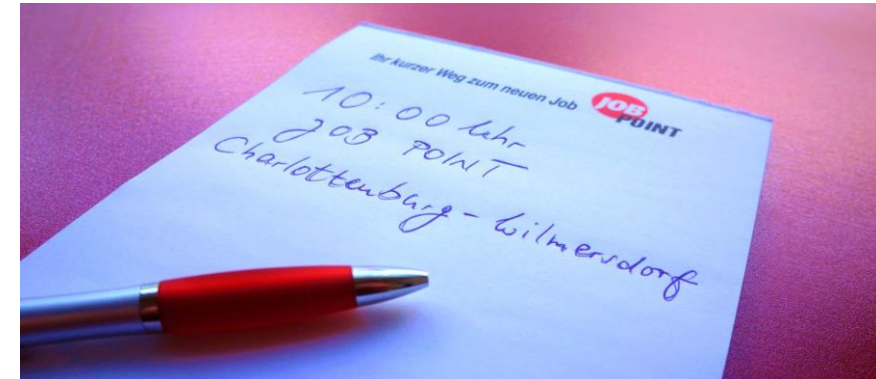 Ihr kurzer Weg zum neuen Job
JOB
POINT
10:00 Uhr
JOB POINT
Charlottenburg - Wilmersdorf